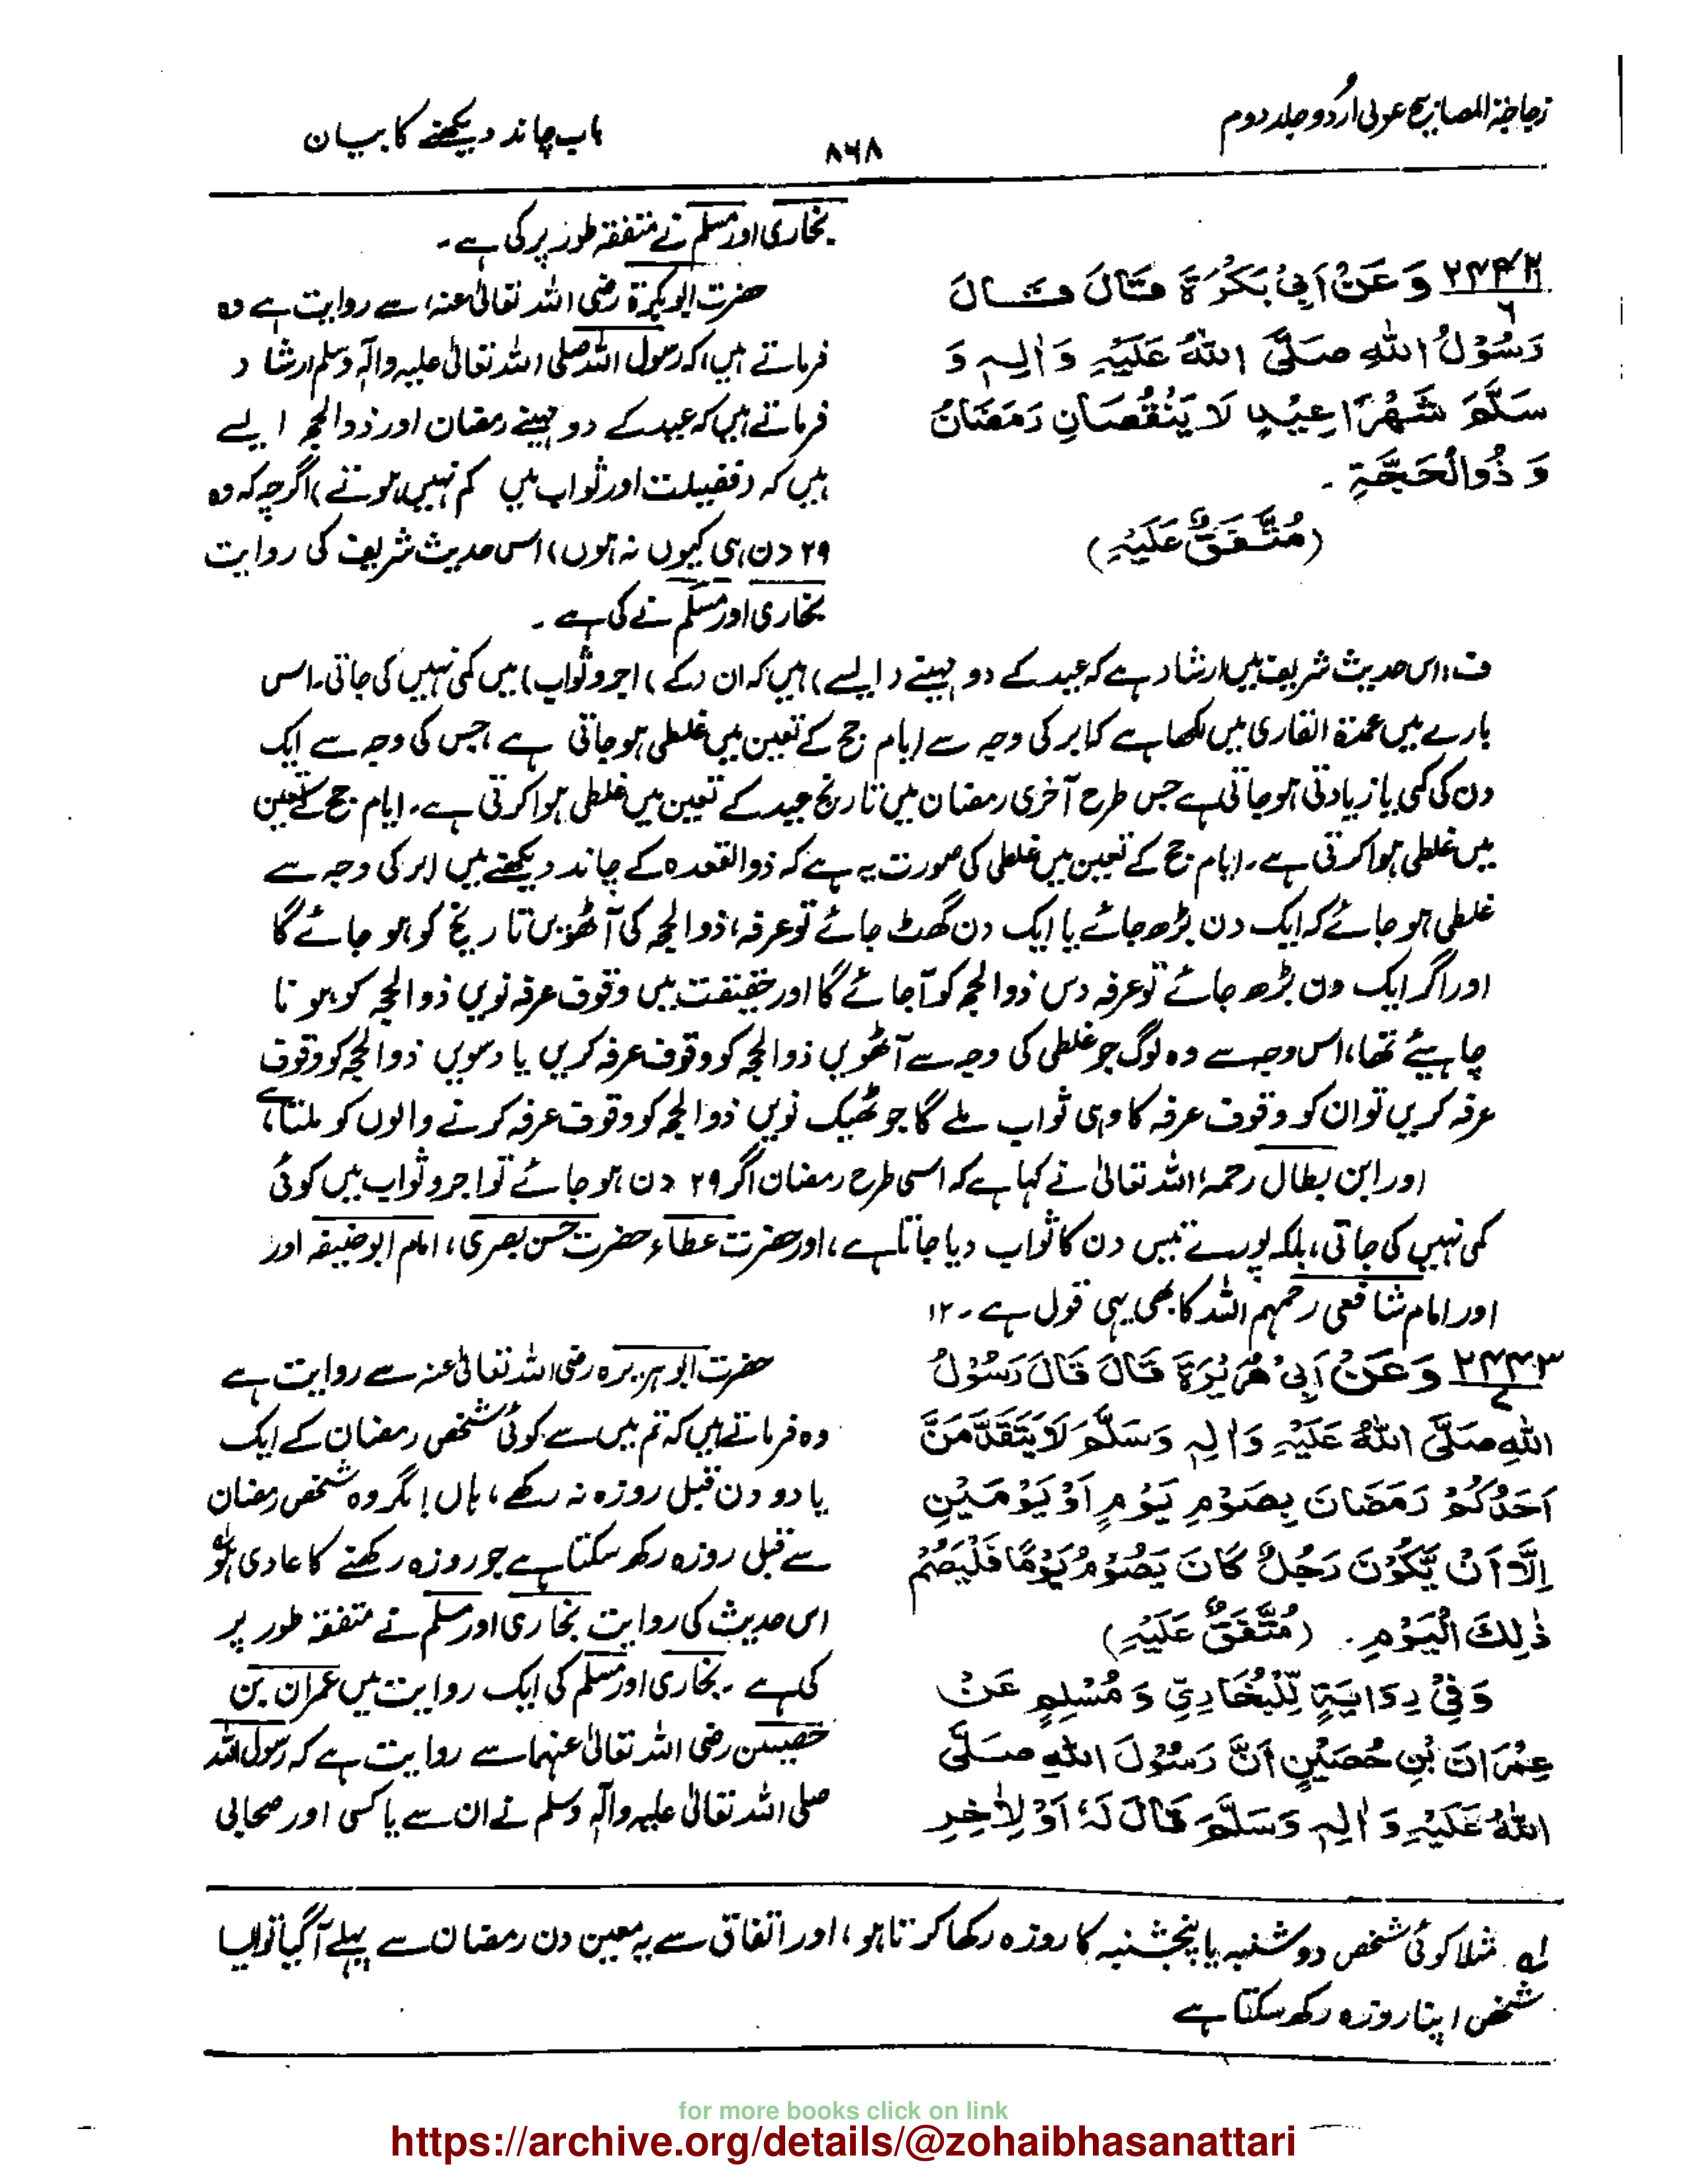 زجاجۃ المصابیح عربی اردو جلد دوم
۸۶۸
باب چاند دیکھنے کا بیان
بخاری اور مسلم نے متفقہ طور پر کی ہے۔
۲۴۴۲/۶ وَعَنْ اَبِیْ بَکْرَۃَ قَالَ قَالَ
رَسُوْلُ اللہِ صَلَّی اللہُ عَلَیْہِ وَاٰلِہٖ وَ
سَلَّمَ شَھْرَا عِیْدٍ لَا یَنْقُصَانِ رَمَضَانُ
وَ ذُوالْحَجَّۃِ ۔
(مُتَّفَقٌ عَلَیْہِ)
حضرت ابوبکرۃ رضی اللہ تعالیٰ عنہ، سے روایت ہے وہ
فرماتے ہیں، کہ رسول اللہ صلی اللہ تعالیٰ علیہ وآلہٖ وسلم ارشاد
فرماتے ہیں کہ عید کے دو مہینے رمضان اور ذوالحجہ ایسے
ہیں کہ (فضیلت اور ثواب میں کم نہیں ہوتے) اگرچہ کہ وہ
۲۹ دن ہی کیوں نہ ہوں) اس حدیث شریف کی روایت
بخاری اور مسلم نے کی ہے ۔
ف: اس حدیث شریف میں ارشاد ہے کہ عید کے دو مہینے (ایسے) ہیں کہ ان (کے) اجر و ثواب) میں کمی نہیں کی جاتی۔ اس
بارے میں عمدۃ القاری میں لکھا ہے کہ ابر کی وجہ سے ایام حج کے تعین میں غلطی ہو جاتی ہے، جس کی وجہ سے ایک
دن کی کمی یا زیادتی ہو جاتی ہے جس طرح آخری رمضان میں تاریخ عید کے تعین میں غلطی ہوا کرتی ہے۔ ایام حج کے تعین
میں غلطی ہوا کرتی ہے۔ ایام حج کے تعین میں غلطی کی صورت یہ ہے کہ ذوالقعدہ کے چاند دیکھنے میں ابر کی وجہ سے
غلطی ہو جائے کہ ایک دن بڑھ جائے یا ایک دن گھٹ جائے تو عرفہ، ذوالحجہ کی آٹھویں تاریخ کو ہو جائے گا
اور اگر ایک دن بڑھ جائے تو عرفہ دس ذوالحجہ کو آجائے گا اور حقیقت میں وقوف عرفہ نویں ذوالحجہ کو ہونا
چاہیئے تھا، اس وجہ سے وہ لوگ جو غلطی کی وجہ سے آٹھویں ذوالحجہ کو وقوف عرفہ کریں یا دسویں ذوالحجہ کو وقوف
عرفہ کریں تو ان کو وقوف عرفہ کا وہی ثواب ملے گا جو ٹھیک نویں ذوالحجہ کو وقوف عرفہ کرنے والوں کو ملتا ہے
اور ابن بطال رحمۃ اللہ تعالیٰ نے کہا ہے کہ اسی طرح رمضان اگر ۲۹ دن ہو جائے تو اجر و ثواب میں کوئی
کمی نہیں کی جاتی، بلکہ پورے تیس دن کا ثواب دیا جاتا ہے، اور حضرت عطاء حضرت حسن بصری، امام ابو حنیفہ اور
اور امام شافعی رحمہم اللہ کا بھی یہی قول ہے ۔ ۱۲
۲۴۴۳/۷ وَعَنْ اَبِیْ ھُرَیْرَۃَ قَالَ قَالَ رَسُوْلُ
اللہِ صَلَّی اللہُ عَلَیْہِ وَاٰلِہٖ وَسَلَّمَ لَا یَتَقَدَّمَنَّ
اَحَدُکُمْ رَمَضَانَ بِصَوْمِ یَوْمٍ اَوْ یَوْمَیْنِ
اِلَّا اَنْ یَّکُوْنَ رَجُلٌ کَانَ یَصُوْمُ یَوْمًا فَلْیَصُمْ
ذٰلِکَ الْیَوْمِ۔ (مُتَّفَقٌ عَلَیْہِ)
وَفِیْ رِوَایَۃٍ لِّلْبُخَارِیِّ وَ مُسْلِمٍ عَنْ
عِمْرَانَ بْنِ حُصَیْنٍ اَنَّ رَسُوْلَ اللہِ صَلَّی
اللہُ عَلَیْہِ وَاٰلِہٖ وَسَلَّمَ قَالَ لَہٗ اَوْ لِاٰخَرِ
حضرت ابوہریرہ رضی اللہ تعالیٰ عنہ سے روایت ہے
وہ فرماتے ہیں کہ تم میں سے کوئی شخص رمضان کے ایک
یا دو دن قبل روزہ نہ رکھے، ہاں! مگر وہ شخص رمضان
سے قبل روزہ رکھ سکتا ہے جو روزہ رکھنے کا عادی ہو
اس حدیث کی روایت بخاری اور مسلم نے متفقہ طور پر
کی ہے ۔ بخاری اور مسلم کی ایک روایت میں عمران بن
حصین رضی اللہ تعالیٰ عنہما سے روایت ہے کہ رسول اللہ
صلی اللہ تعالیٰ علیہ وآلہٖ وسلم نے ان سے یا کسی اور صحابی
لہ مثلاً کوئی شخص دوشنبہ یا پنجشنبہ کا روزہ رکھا کرتا ہو، اور اتفاق سے یہ معین دن رمضان سے پہلے آگیا تو ایسا
شخص اپنا روزہ رکھ سکتا ہے
for more books click on link
https://archive.org/details/@zohaibhasanattari